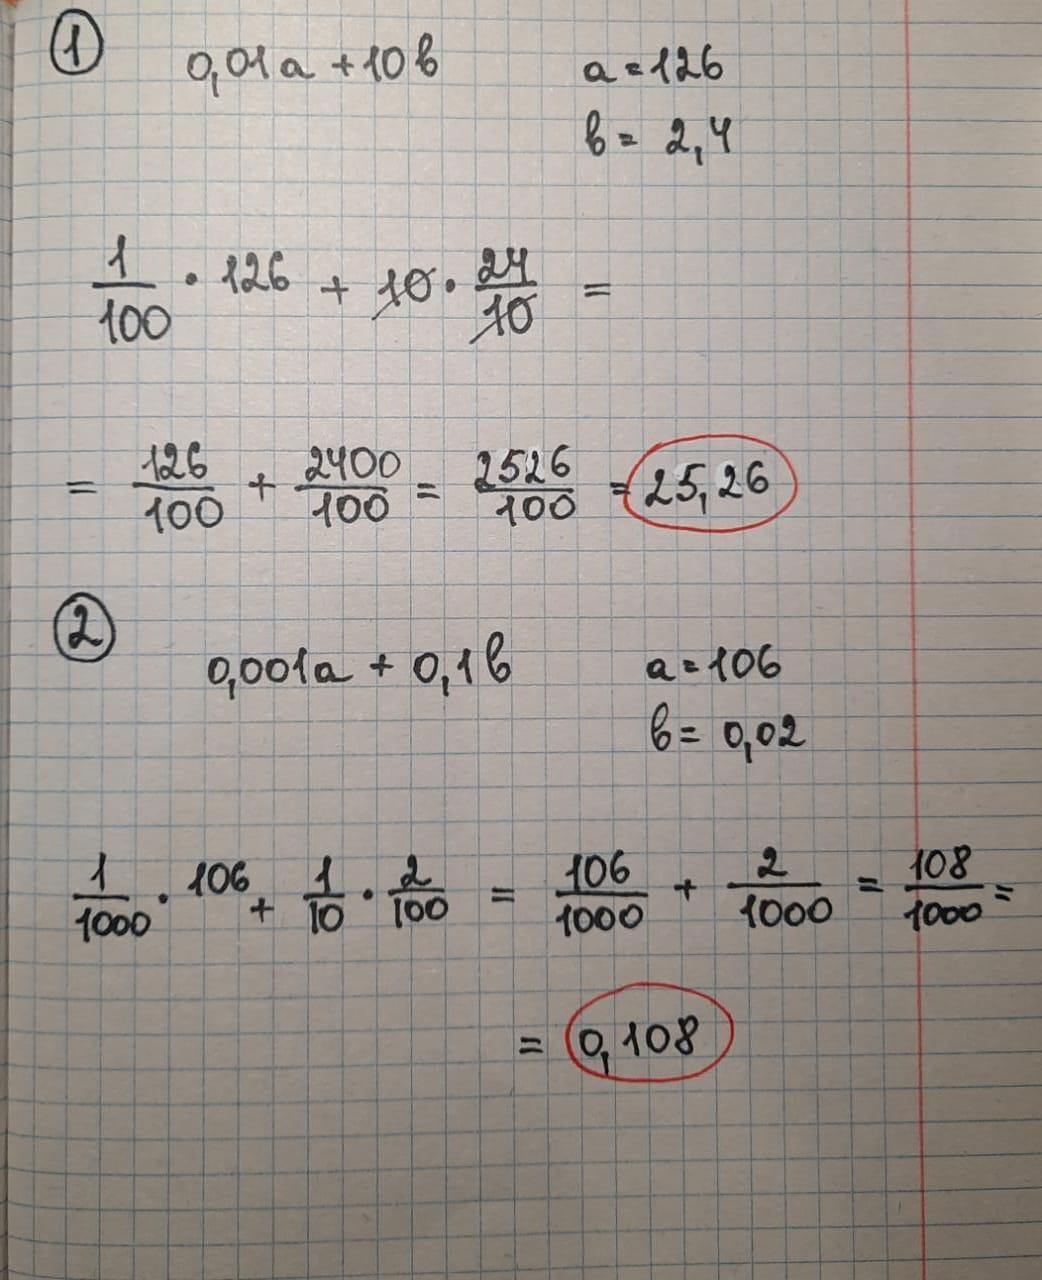 ① 0,01а + 10в а = 126
в = 2,4
1/100 · 126 + 10 · 24/10 =
= 126/100 + 2400/100 = 2526/100 = 25,26
② 0,001а + 0,1в а = 106
в = 0,02
1/1000 · 106 + 1/10 · 2/100 = 106/1000 + 2/1000 = 108/1000 =
= 0,108